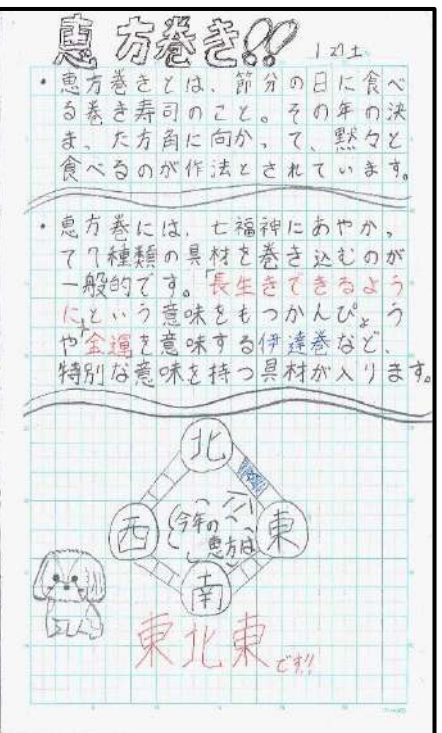 恵方巻き!!
1/21土
・恵方巻きとは、節分の日に食べ
る巻き寿司のこと。その年の決
まった方角に向かって、黙々と
食べるのが作法とされています。
・恵方巻には、七福神にあやかっ
て7種類の具材を巻き込むのが
一般的です。「長生きできるよう
に」という意味をもつかんぴょう
や金運を意味する伊達巻など、
特別な意味を持つ具材が入ります。
北
西
今年の
恵方は
東
南
東北東です!!